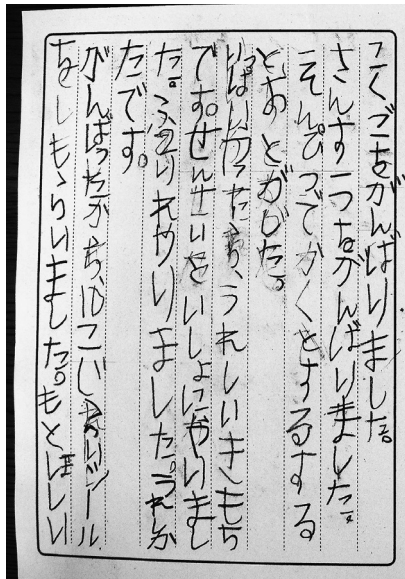 こくごをがんばりました。
さんすうをがんばりました。
えんぴつでかくとするする
とおとがした。
いっぱいたり、うれしいきもち
です。せんせいといしょにやいまし
た。ふたりれやりました。うれしか
たです。
がんばったから、はこじシール
をしもらいました。もとほしい